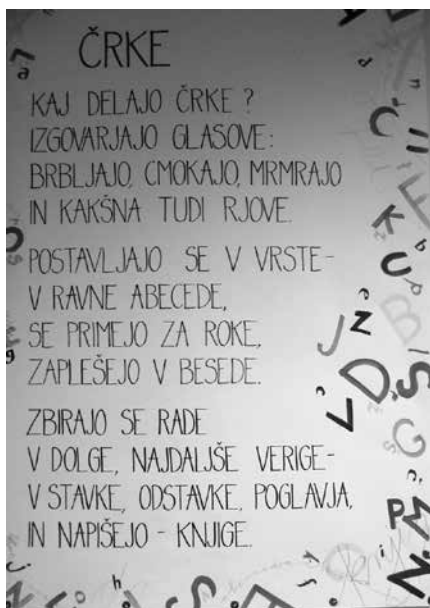 ČRKE
KAJ DELAJO ČRKE ?
IZGOVARJAJO GLASOVE:
BRBLJAJO, CMOKAJO, MRMRAJO
IN KAKŠNA TUDI RJOVE.
POSTAVLJAJO SE V VRSTE-
V RAVNE ABECEDE,
SE PRIMEJO ZA ROKE,
ZAPLEŠEJO V BESEDE.
ZBIRAJO SE RADE
V DOLGE, NAJDALJŠE VERIGE-
V STAVKE, ODSTAVKE, POGLAVJA,
IN NAPIŠEJO - KNJIGE.